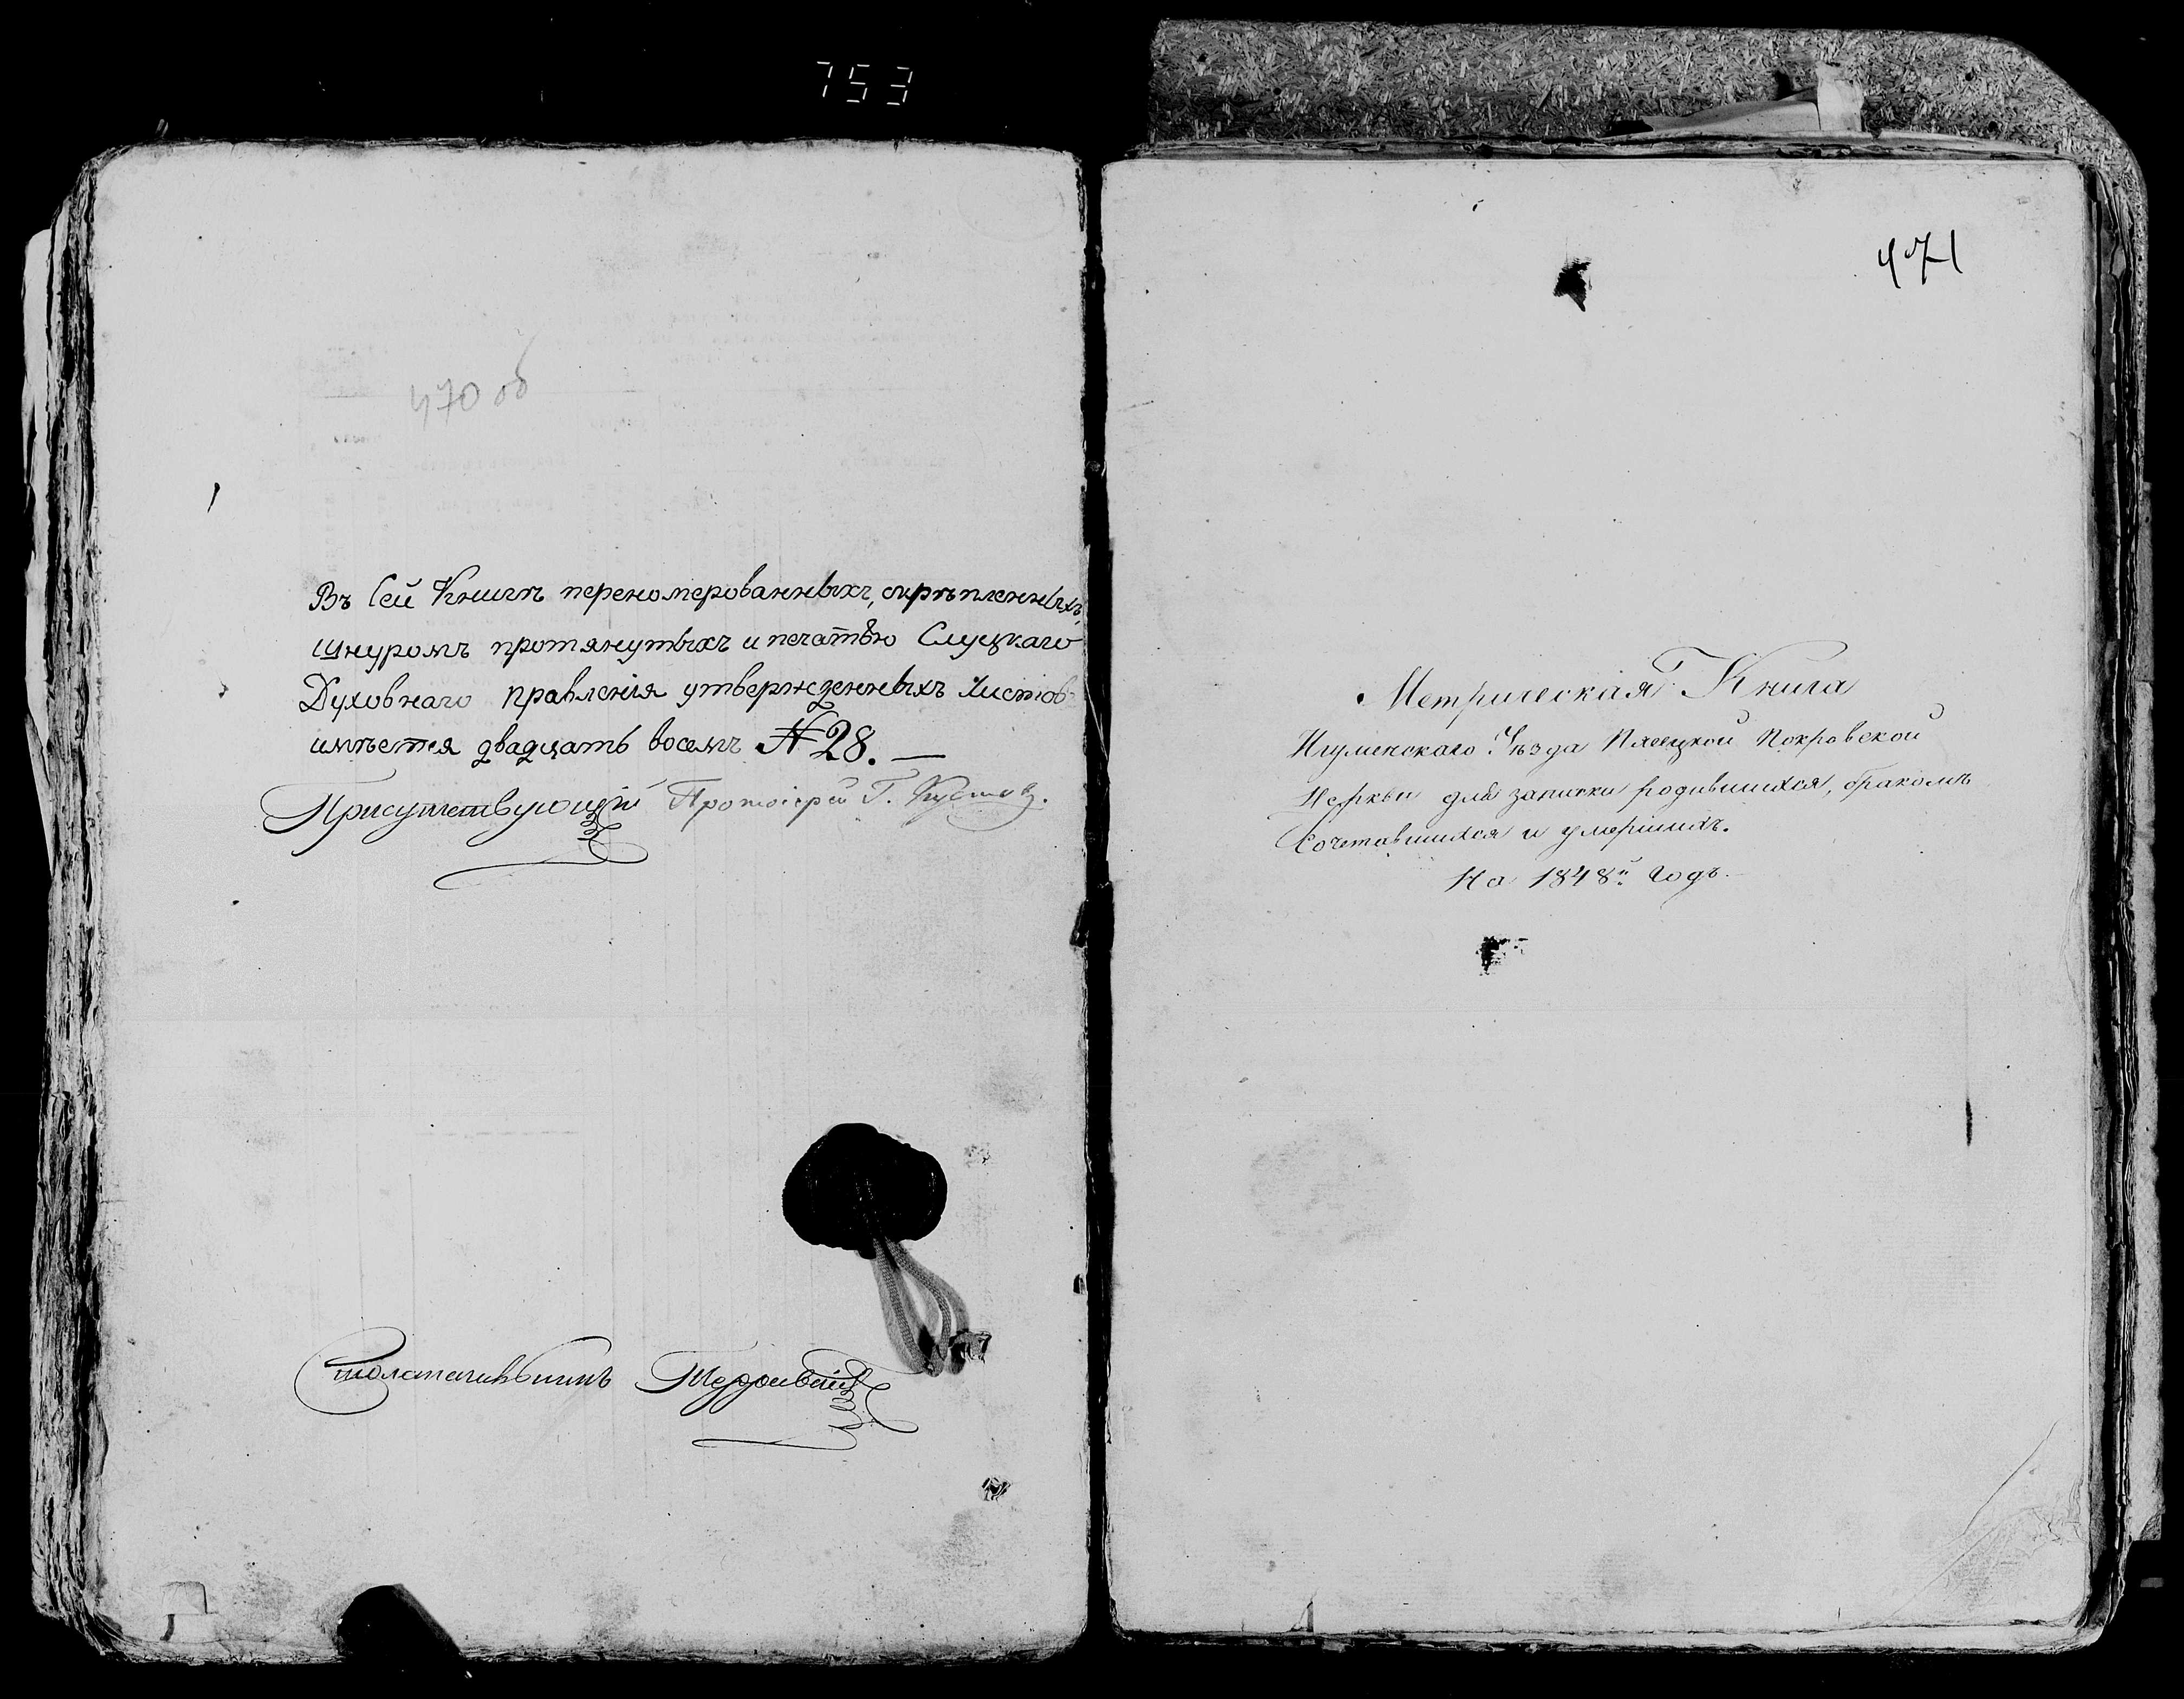 753
470 об
Въ Сей Книгѣ переномерованныхъ, скрѣпленныхъ,
шнуромъ протянутыхъ и печатью Слуцкаго
Духовнаго правленія утвержденныхъ листовъ
имѣется двадцать восемъ № 28. —
Присутствующій Протоіерей Г.
471
Метрическая Книга
Игуменскаго Уѣзда Пясецкой Покровской
Церкви для записки родившихся, бракомъ
Сочетавшихся и умершихъ.
На 1848й Годъ.